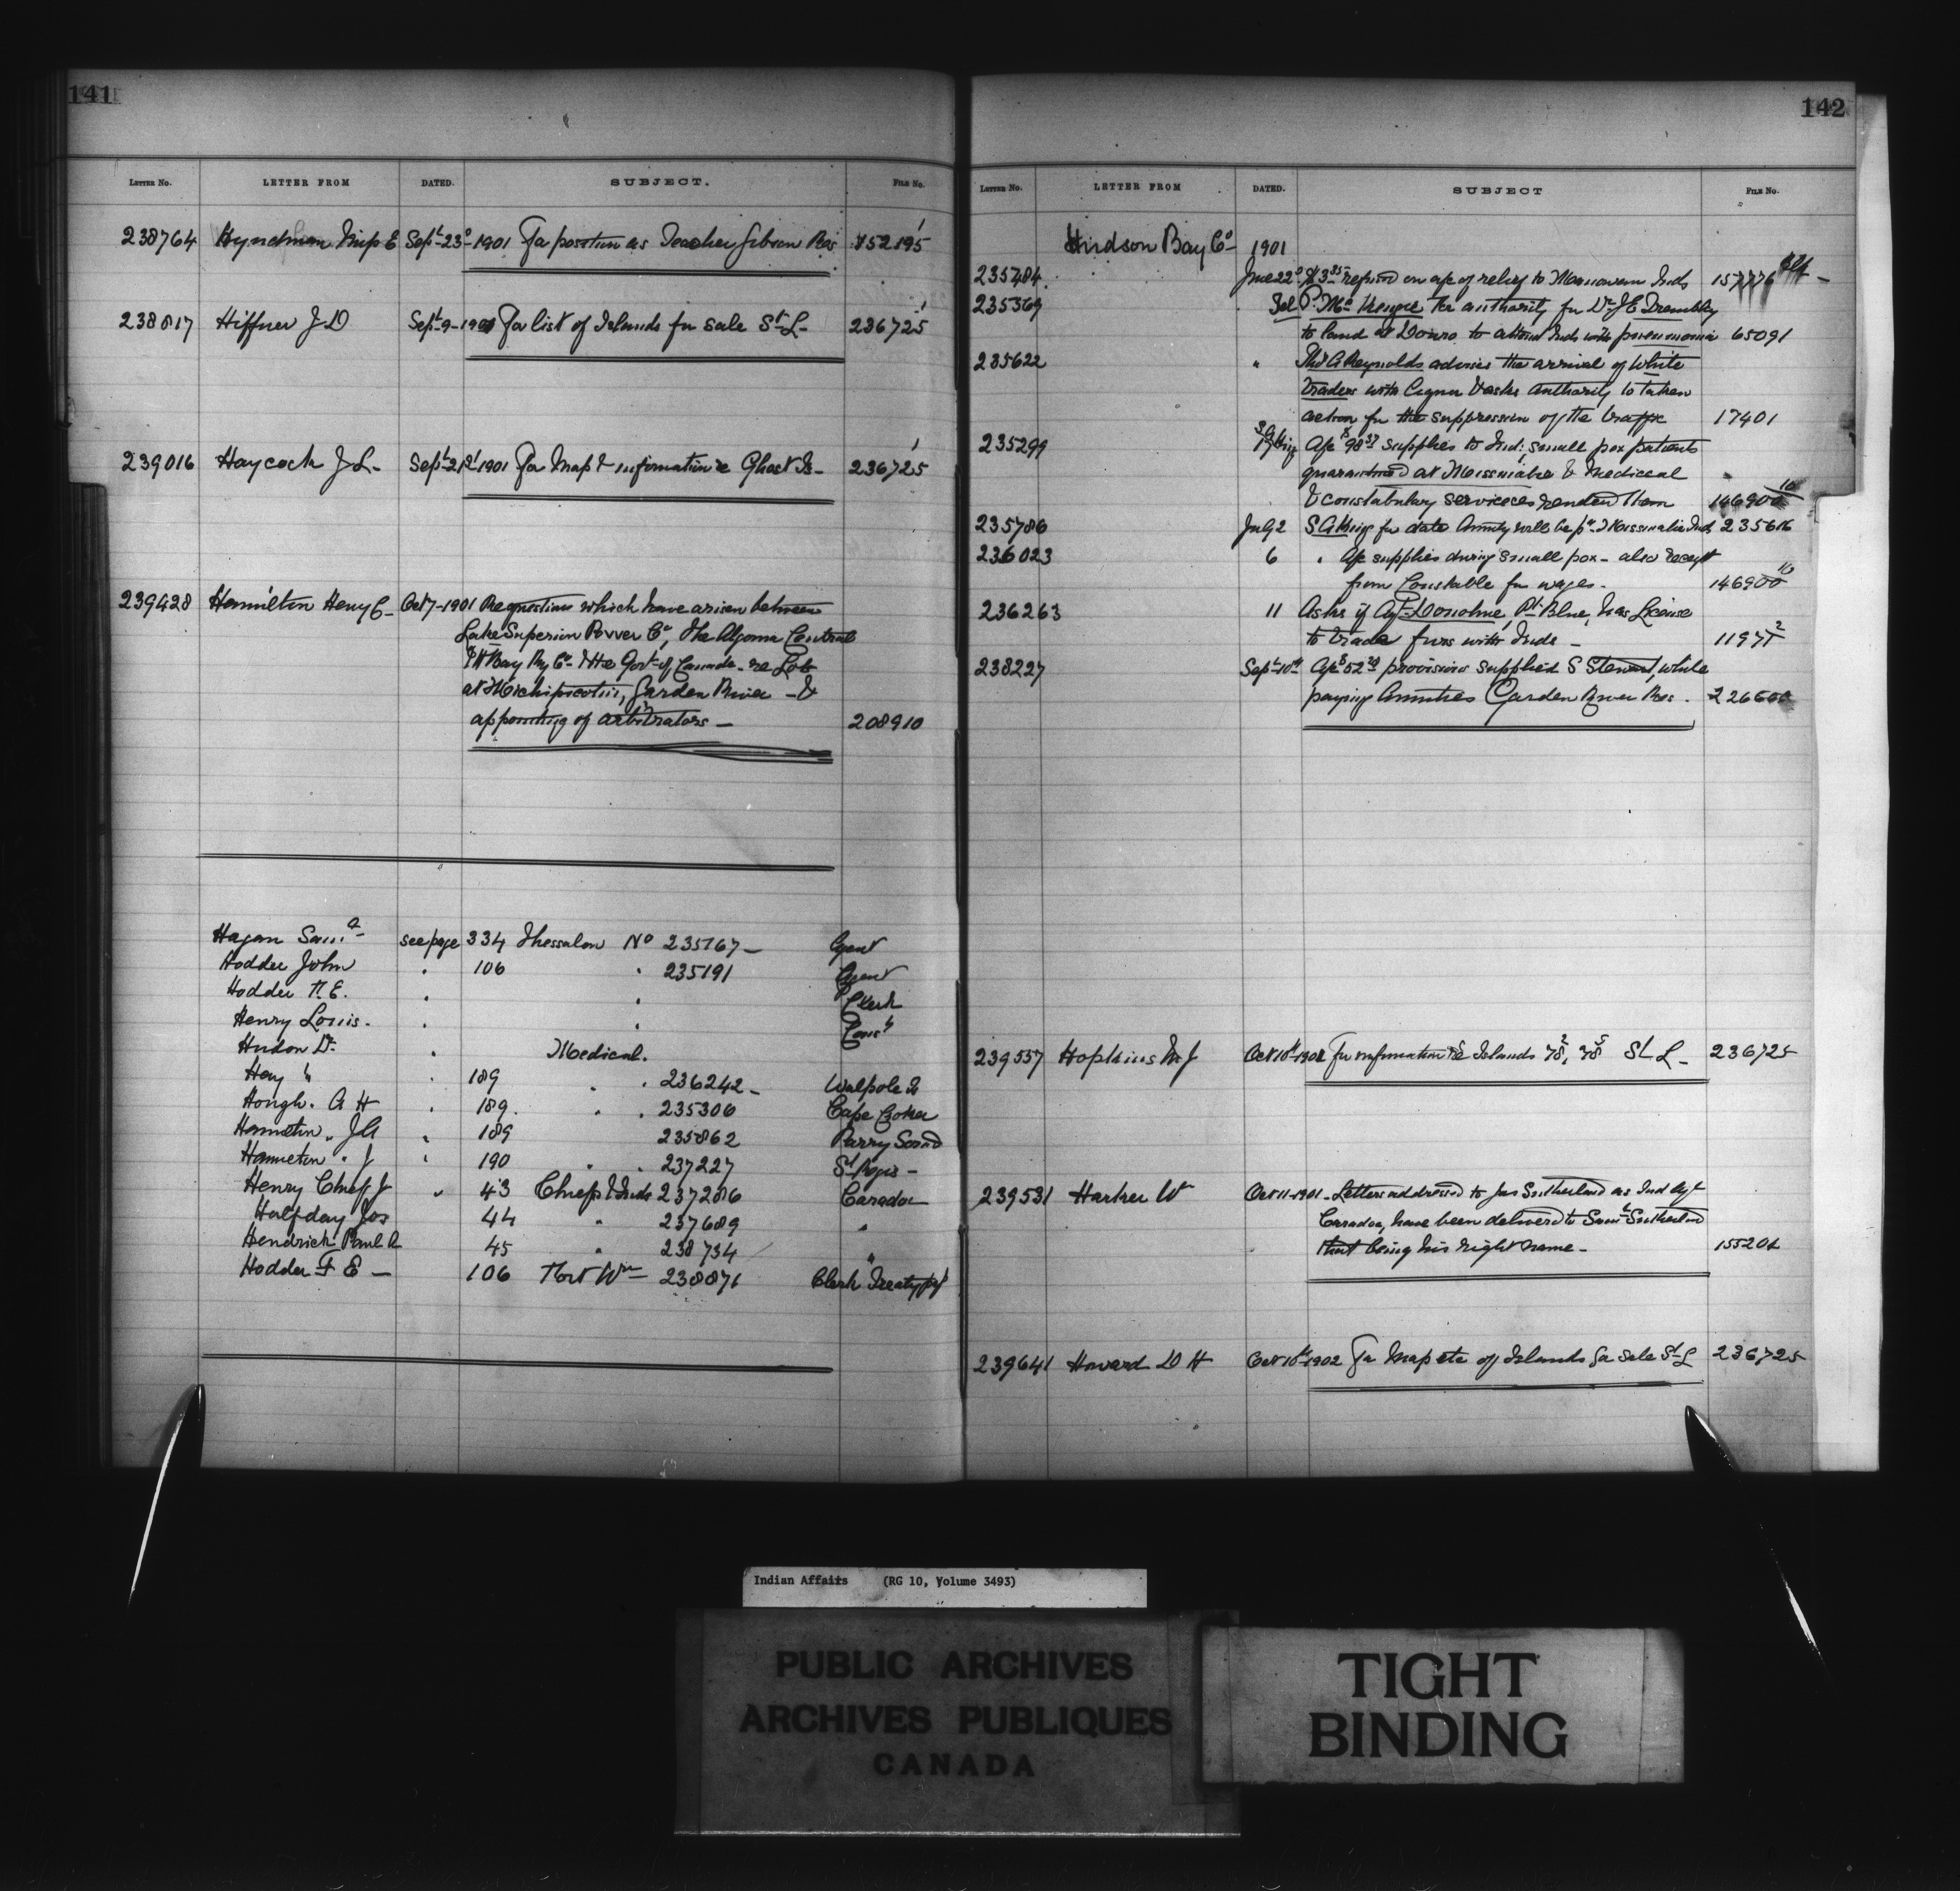 141
LETTER NO. LETTER FROM DATED. SUBJECT. FILE NO.
238764 Hyndman Miss E Sept 23d 1901 For position as Teacher Gibson Res 152195 1
238817 Hiffner J D Sept 9 1901 For list of Islands for sale St L 236725 1
239016 Haycock J L Sept 21st 1901 For Map & information re Ghost Is 236725 1
239428 Hamilton Henry C Oct 7 1901 Re questions which have arisen between
Lake Superior Power Co, The Algoma Central
& H Bay Ry Co & the Govt of Canada re Lots
at Michipicoten, Garden River &
appointing of arbitrators 208910
Hagan Saml see page 334 Thessalon No 235167 Agent
Hodder John " 106 " 235191 Agent
Hodder F. E. " " Clerk
Henry Louis " " Const
Hudon Dr " Medical.
Hay " " 189 " " 236242 Walpole Is
Hough. A H " 189. " " 235306 Cape Croker
Hamilton " J A " 189 235862 Parry Sound
Hamilton " J " 190 " " 237227 St Regis
Henry Chief J " 43 Chiefs & Inds 237286 Caradoc
Halfday Jos 44 " 237689 "
Hendrick Paul A 45 " 238734 "
Hodder F E 106 Fort Wm 238871 Clerk Treaty
142
LETTER NO. LETTER FROM DATED. SUBJECT FILE NO.
Hudson Bay Co 1901
235484 June 22d $3.35 refund on a/c of relief to Inds 157776
235369 Sel P. McKenzie for authority for Dr J E Tremblay
to land at to attend Inds with pneumonia 65091
235622 " Thos A Reynolds advises the arrival of White
Traders with Liquor & asks authority to taken
action for the suppression of the traffic 17401
235299 S A King a/c $98.37 supplies to Ind: small pox patients
quarantined at Missinaibe & Medical
& constabulary services rendered them 146900 10
235786 July 2 S A King for date Annuity will be pd Missinaibe Inds 235616
236023 6 " a/c supplies during small pox - also receipt
from Constable for wages. 146900 10
236263 11 Asks if Agt Donohue, Pt. Blue, has License
to trade furs with Inds 11977 2
238227 Sept 10th a/c $52.79 provisions supplied S Stewart, while
paying Annuities Garden River Res. 226600
239557 Hopkins M J Oct 10th 1901 For information re Islands St L 236725
239531 Harker W Oct 11 1901 Letters addressed to Jas Sutherland as Ind Agt
Caradoc, have been delivered to Saml Sutherland
that being his right name 155201
239641 Howard D H Oct 10th 1902 For Map etc of Islands for sale St L 236725
Indian Affairs (RG 10, Volume 3493)
PUBLIC ARCHIVES
ARCHIVES PUBLIQUES
CANADA
TIGHT
BINDING